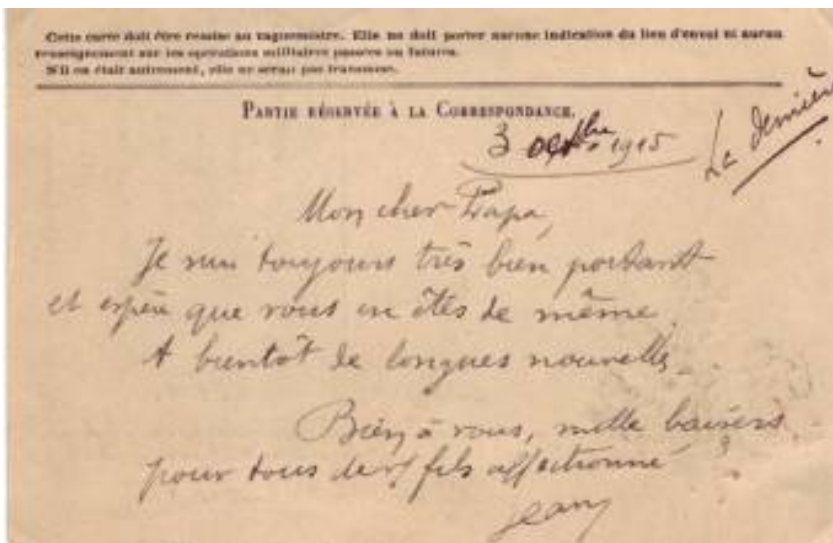 Cette carte doit être remise au vaguemestre. Elle ne doit porter aucune indication du lieu d'envoi ni aucun
renseignement sur les opérations militaires passées ou futures.
S'il en était autrement, elle ne serait pas transmise.
PARTIE RÉSERVÉE À LA CORRESPONDANCE.
3 1915
La dernière
Mon cher Papa,
Je suis toujours très bien portant
et espère que vous en êtes de même.
A bientôt de longues nouvelles.
Bien à vous, mille baisers
pour tous de fils affectionné
Jean